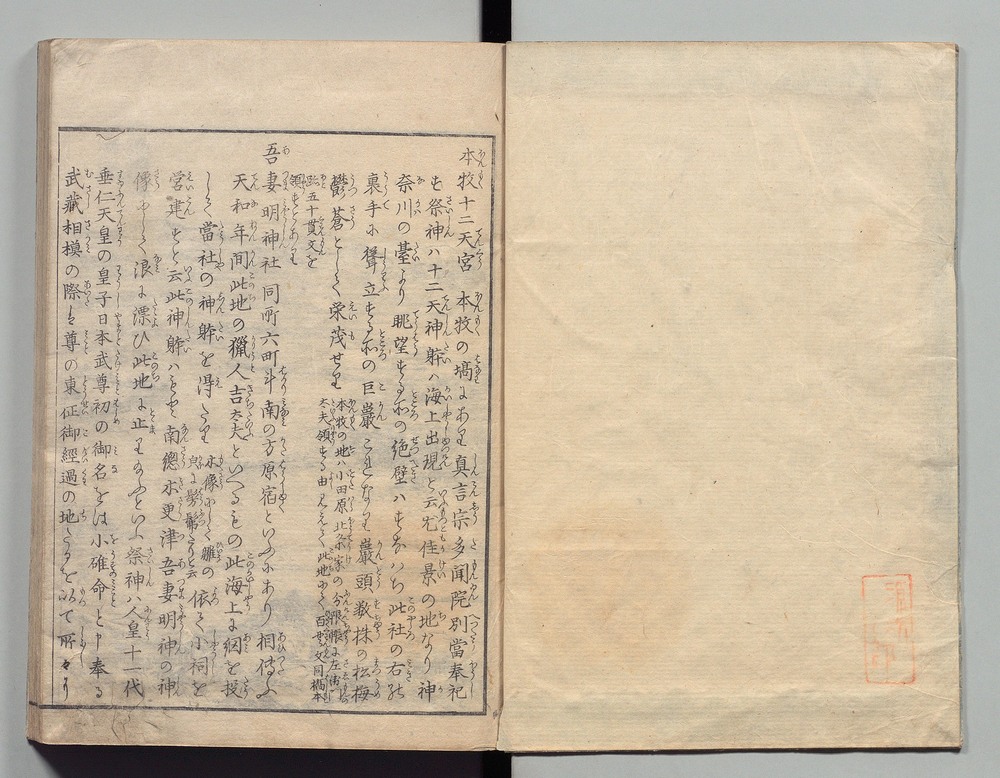 本牧十二天宮 本牧の塙にあり真言宗多聞院別當奉祀
す祭神ハ十二天神躰ハ海上出現と云尤佳景の地なり神
奈川の臺より眺望する所の絶壁ハすなハち此社の右の
裏手に聳立する所の巨巖これなり巖頭数株の松梅
鬱蒼として栄茂せり 本牧の地ハ小田原北条家の分限帳に左衛門
太夫領する由みえて此地にて百廿貫文同橋本
五十貫文を
領すとあり
吾妻明神社 同所六町斗南の方原宿といふにあり相傳ふ
天和年間此地の獵人吉太夫といへるもの此海上に網を投
しく當社の神躰を得たり 木像にして雛の
皃に髣髴たりと云 依て小祠を
営建すと云此神躰ハもと南總木更津吾妻明神の神
像にして浪に漂ひ此地に止り給ふといふ祭神ハ人皇十一代
垂仁天皇の皇子日本武尊初の御名をは小碓命と申奉る
武藏相模の際は尊の東征御經過の地たるを以て所々より